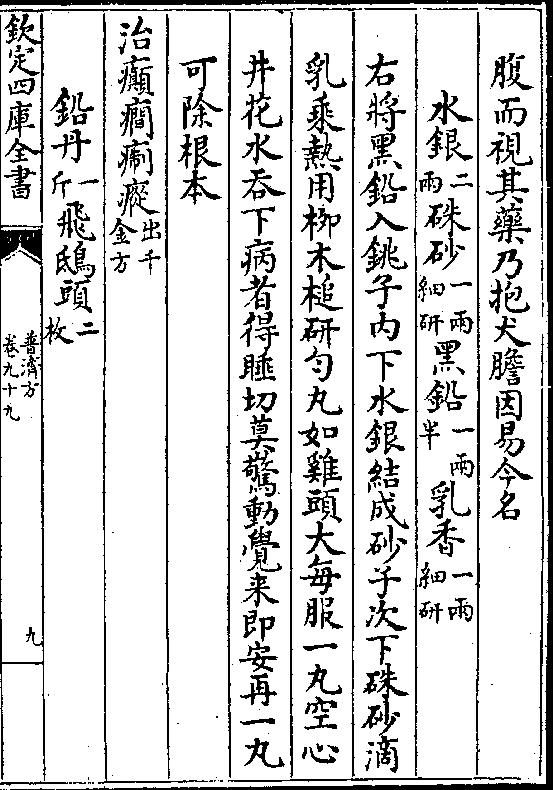 腹而視其藥乃抱犬膽因易今名
水銀二兩硃砂一兩細研黑鉛一兩半乳香一兩細研
右將黑鉛入銚子内下水銀結成砂子次下硃砂滴
乳乘熱用柳木槌研勻丸如雞頭大每服一丸空心
井花水吞下病者得睡切莫驚動覺来即安再一丸
可除根本
治癲癇瘈瘲出千金方
鉛丹一斤飛鴟頭二枚
欽定四庫全書
普濟方
卷九十九
九